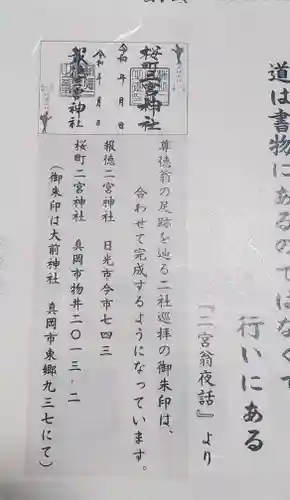 道は書物にあるのではなくて
行いにある
『二宮翁夜話』より
桜町二宮神社
令和 年 月 日
報徳二宮神社
令和 年 月 日
尊徳翁の足跡を辿る二社巡拝の御朱印は、
合わせて完成するようになっています。
報徳二宮神社 日光市今市七四三
桜町二宮神社 真岡市物井二〇一三‐二
(御朱印は大前神社 真岡市東郷九三七にて)